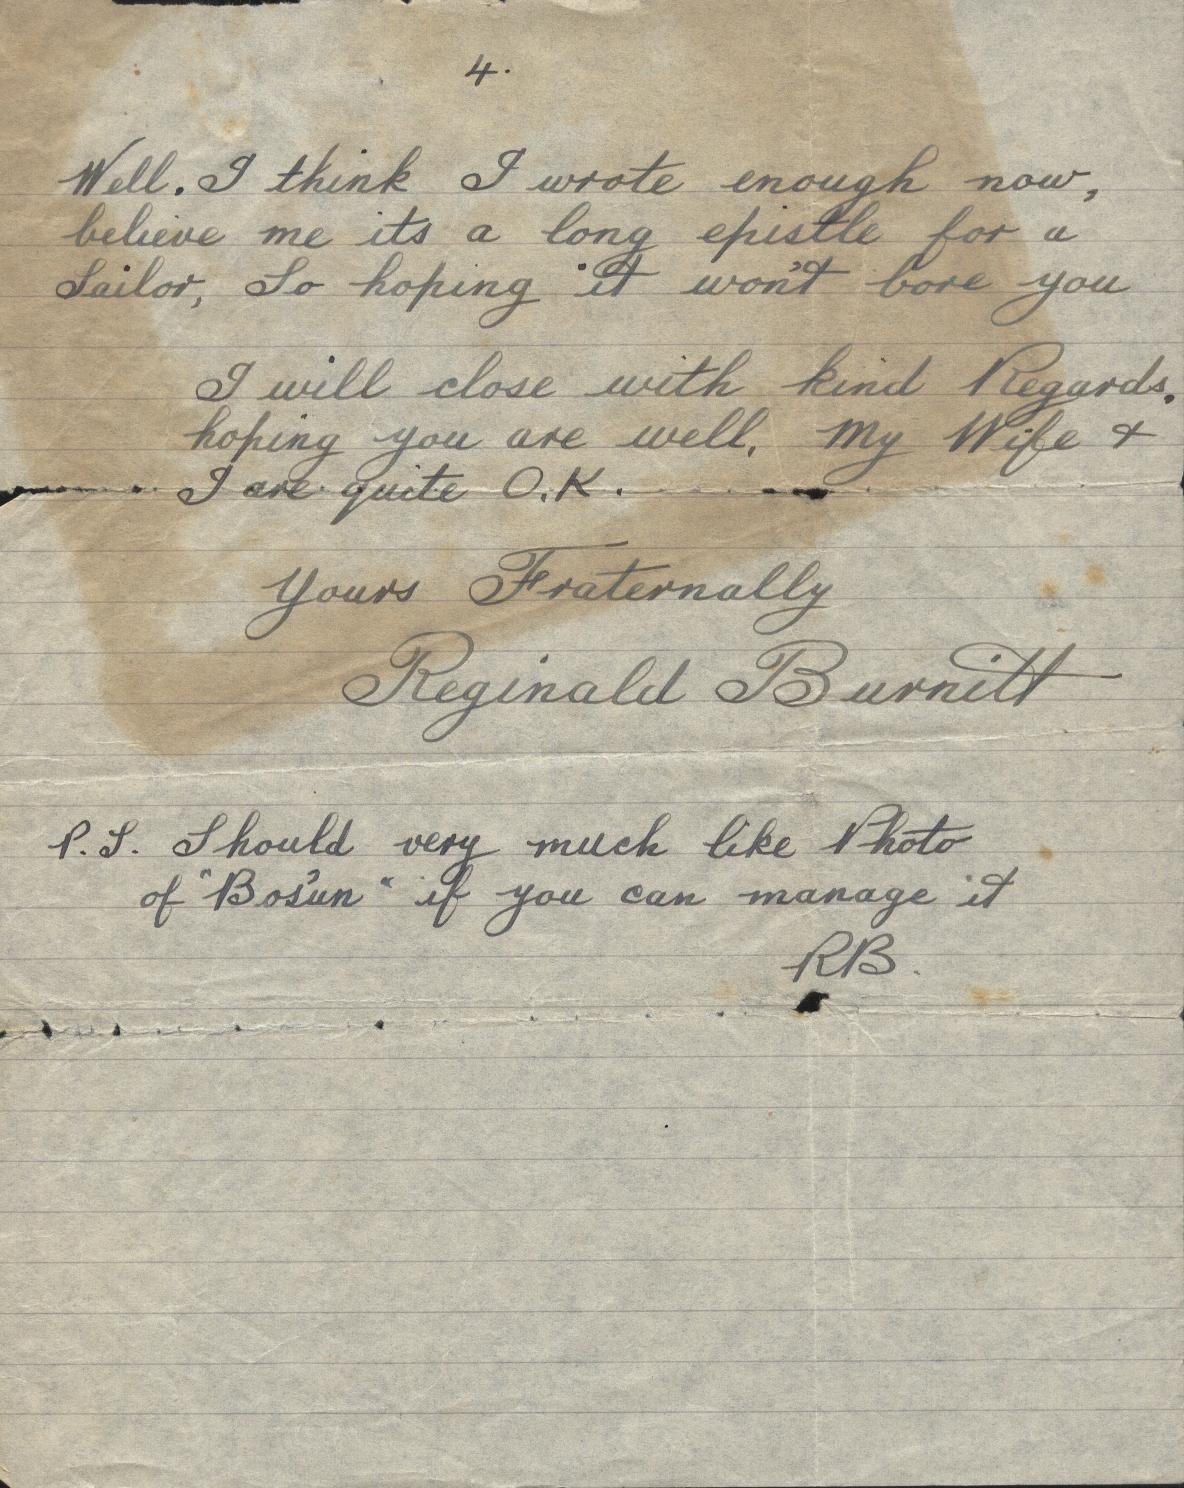 4.
Well. I think I wrote enough now,
believe me its a long epistle for a
Sailor, So hoping it won't bore you
I will close with kind Regards.
hoping you are well. My Wife &
I are quite O.K.
Yours Fraternally
Reginald Burnitt
P.S. Should very much like Photo
of "Bos'un" if you can manage it
RB.